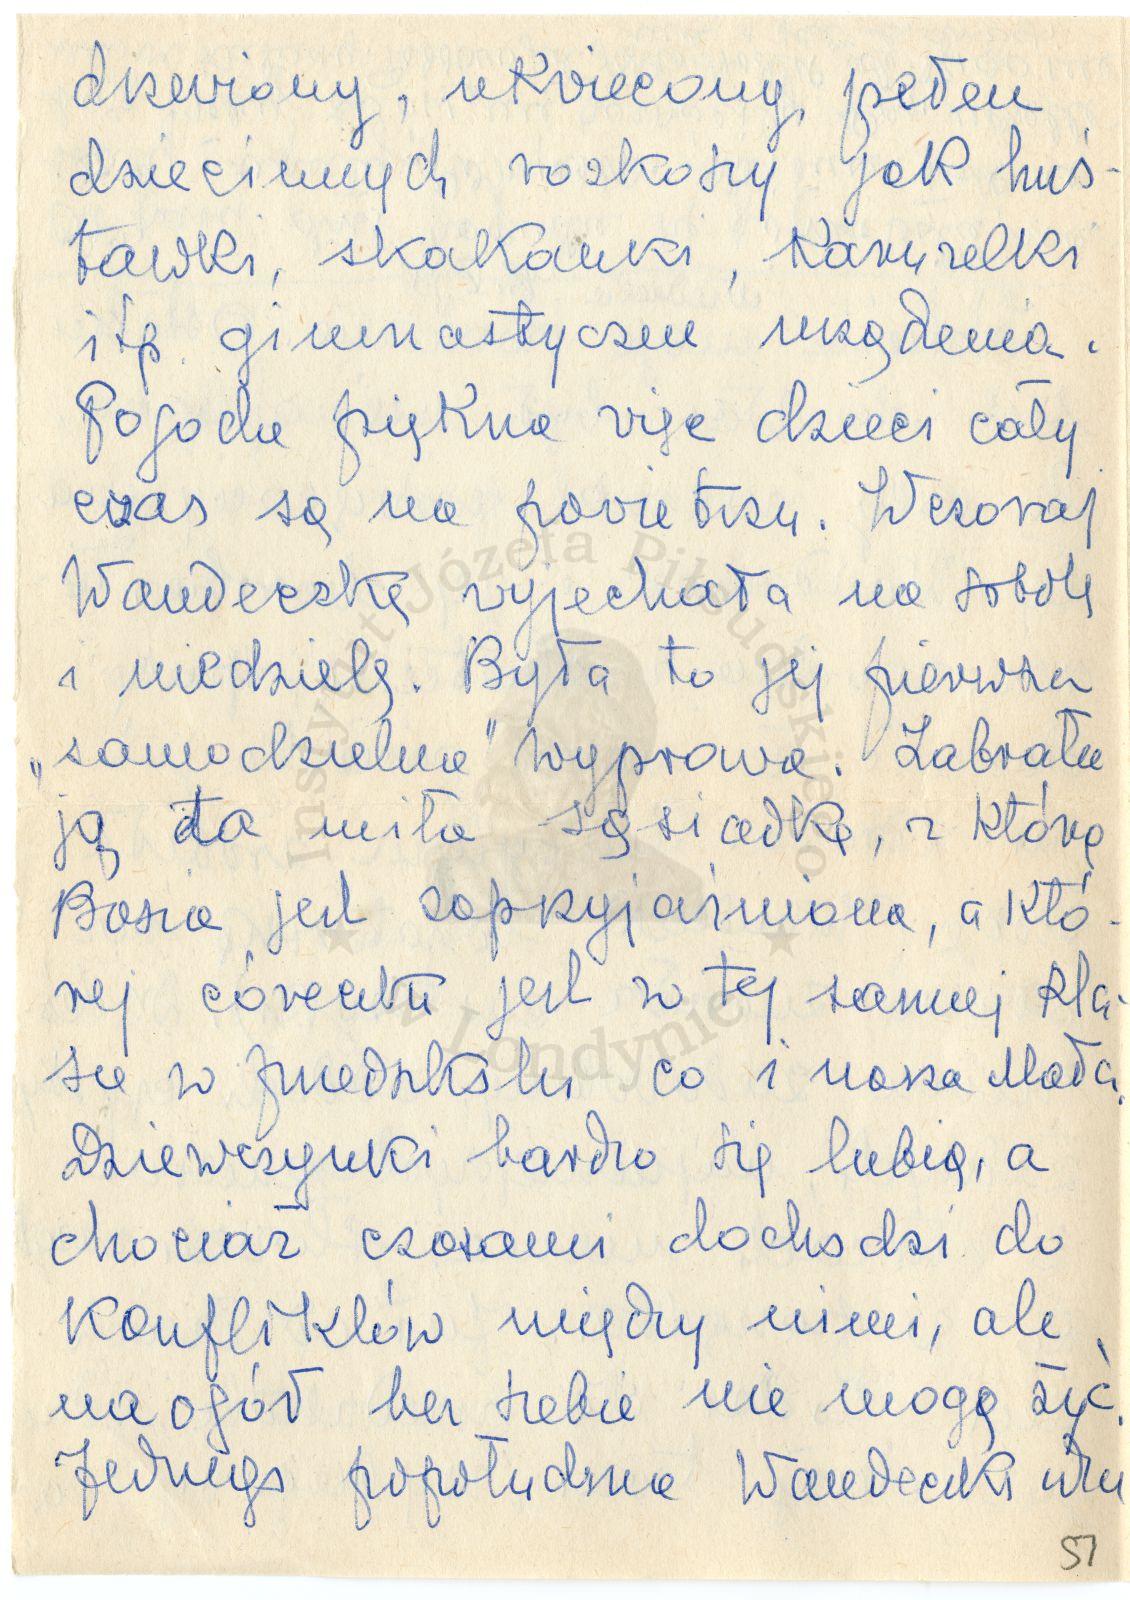 drzewiony, ukwiecony, pełen
dziecinnych rozkoszy jak huś-
tawki, skakanki, karuzelki
itp. gimnastyczne urządzenia.
Pogoda piękna więc dzieci cały
czas są na powietrzu. Wczoraj
Wandeczka wyjechała na sobotę
i niedzielę. Była to jej pierwsza
„samodzielna" wyprawa. Zabrała
ją ta miła sąsiadka, z którą
Basia jest zaprzyjaźniona, a któ-
rej córeczka jest w tej samej kla-
sie w przedszkolu co i nasza Mała.
Dziewczynki bardzo się lubią, a
chociaż czasami dochodzi do
konfliktów między nimi, ale
na ogół bez siebie nie mogą żyć.
Jednego popołudnia Wandeczki
51
Instytut Józefa Piłsudskiego
w Londynie